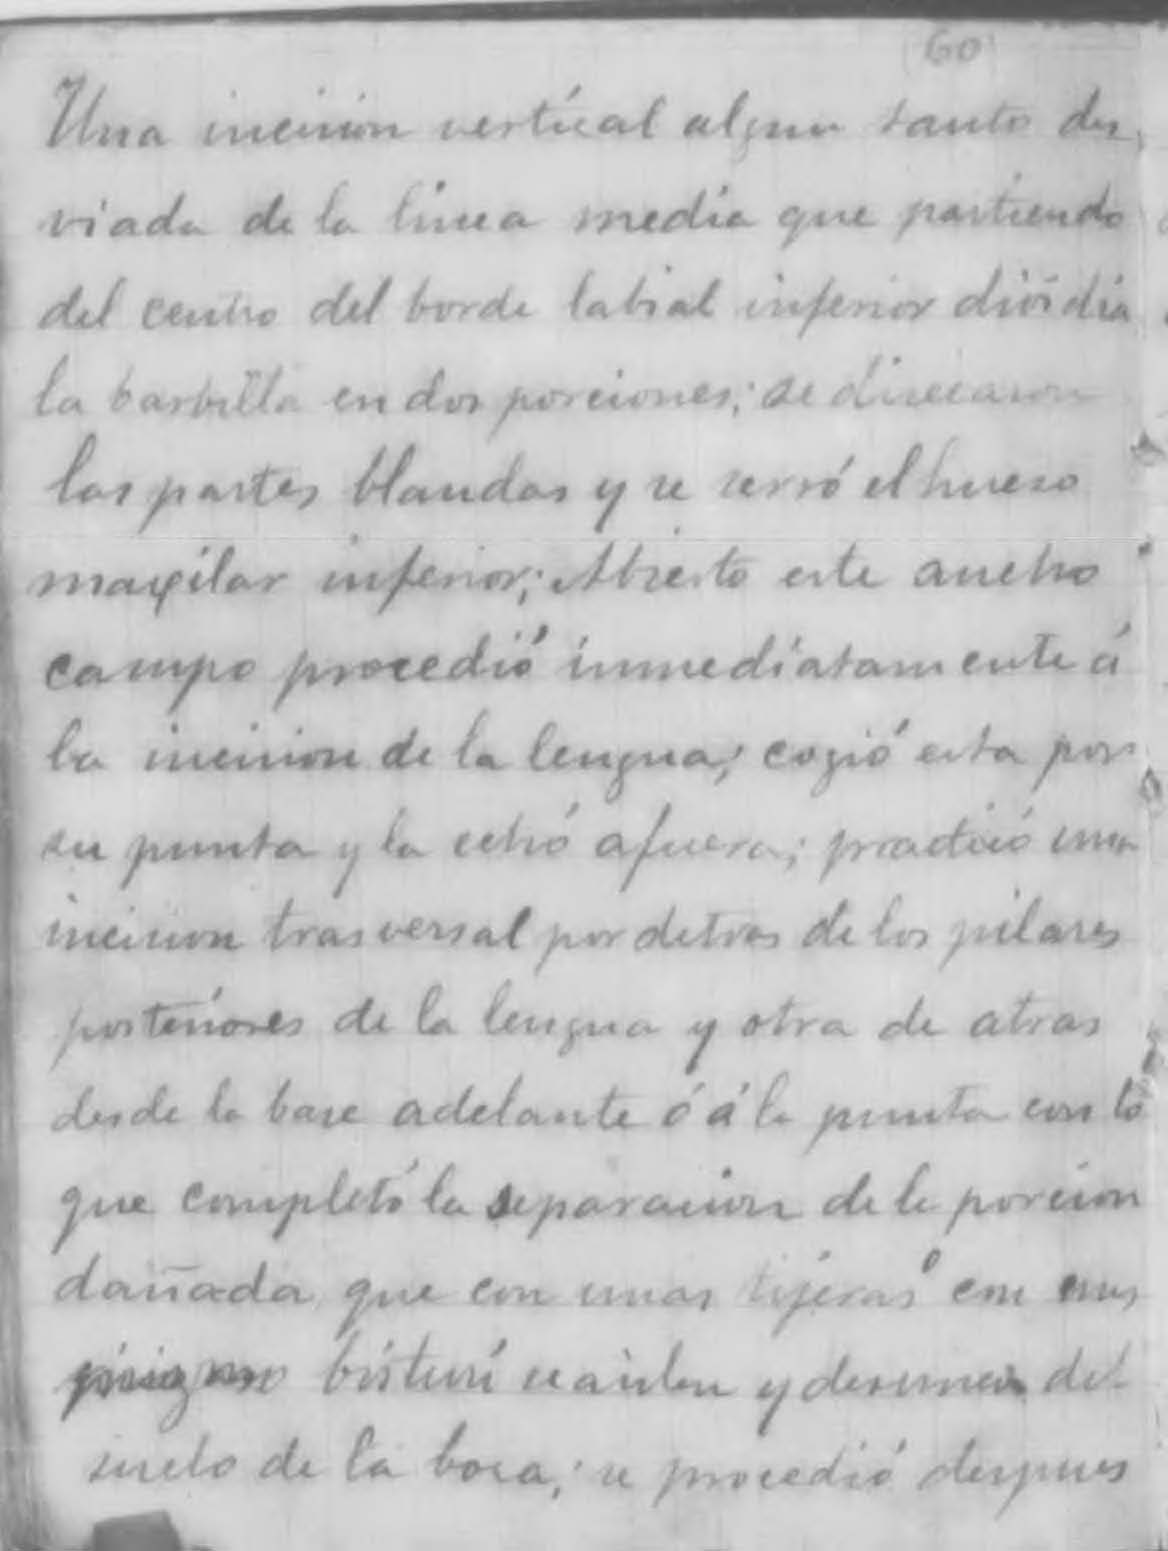 60
Una incision vertical algun tanto des
viada de la linea media que partiendo
del centro del borde labial inferior dividia
la barbilla en dos porciones; se disecaron
las partes blandas y se serró el hueso
maxilar inferior; Abierto este ancho
campo procedió inmediatamente á
la incision de la lengua; cogió esta por
su punta y la echó afuera; practicó una
incision trasversal por detras de los pilares
posteriores de la lengua y otra de atras
desde la base adelante ó á la punta con lo
que completó la separacion de la porcion
dañada que con unas tijeras ó con
bisturí se aislan y desunen del
suelo de la boca; se procedió despues